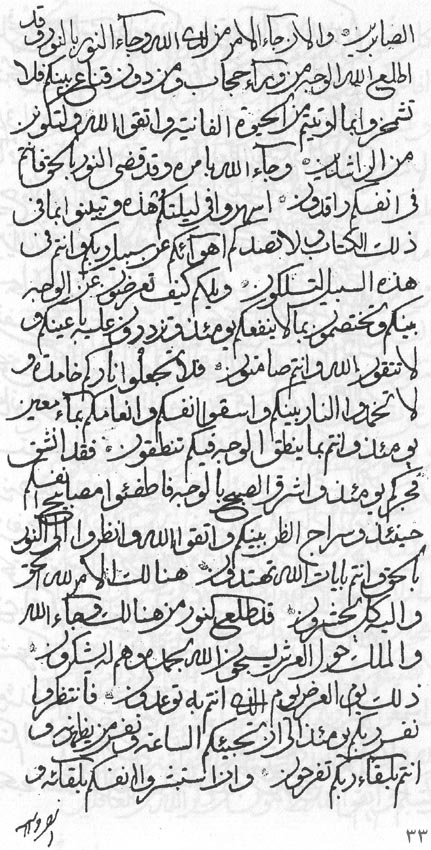 الصابرين والان جاء الامر من لدى الله و جاء النور بالنور و قد
اطلع الله الوجه من وراء حجاب و من دون قناع بينكم فلا
بما اوتيتم من الحيوة الفانيه و اتقوا الله و لتكونن
من الراشدين و جاء الله بامره و قد قضى النور بالحق فانتم
فى انفسكم راقدون اسهروا فى ليلتكم هذه و تبينوا بما فى
ذلك الكتاب و لا تصدكم اهوائكم عن سبيل ربكم و انتم فى
هذه السبيل لتسلكون ويلكم كيف تعرضون عن الوجه
بينكم و تختصمون بما لا ينفعكم يومئذ و باعينكم و
لا تتقون الله و انتم صامتون فلا تجعلوا ناركم خامدة و
لا تخمدوا النار بينكم و اسقوا انفسكم و انعامكم بماء معين
يومئذ و انتم بما ينطق الوجه فيكم تنطقون فقد انشق
فجركم يومئذ و اشرق الصبح بالوجه فاطفئوا مصابيح انفسكم
حينئذ و سراج الظن بينكم و اتقوا الله و انظروا الى النور
بالحق و انتم بايات الله تهتدون هنالك الامر لله الحق
و اليه كل يحشرون قد طلع النور من هنالك و جاء الله
و الملك حول العرش يسبحون الله بحمده و هم له يشكرون
ذلك يوم العرض يوم الذى انتم به توعدون فانتظروا
نفس ربكم يومئذ الى ان تجيئكم الساعة و نفس من يظهره و
انتم بلقاء ربكم تفرحون و ان استبشروا انفسكم بلقائه و
٣٣